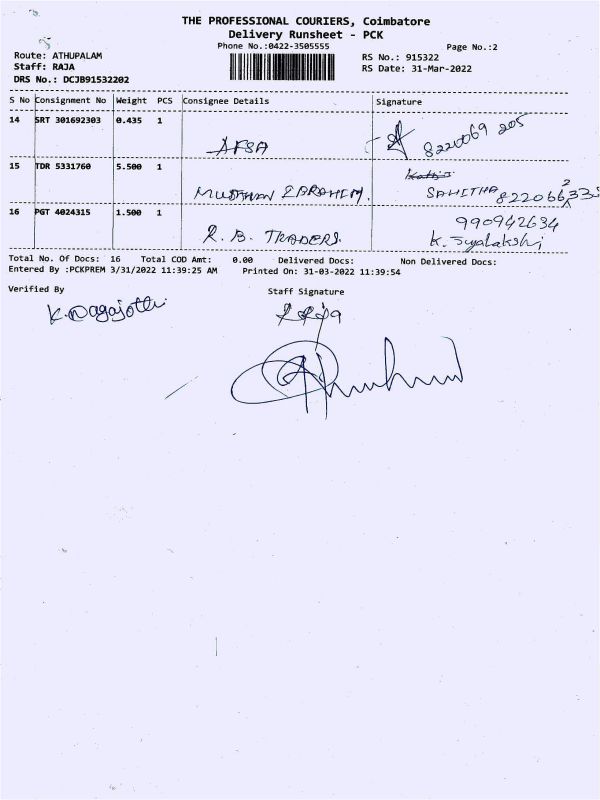 THE PROFESSIONAL COURIERS, Coimbatore
Delivery Runsheet - PCK
Phone No.:0422-3505555
Page No.:2
Route: ATHUPALAM
RS No.: 915322
Staff: RAJA
RS Date: 31-Mar-2022
DRS No.: DCJB91532202
S No Consignment No Weight PCS Consignee Details Signature
14 SRT 301692303 0.435 1
AFSA 8220069 205
15 TDR 5331760 5.500 1
EBRAHIM. SAHITHA
16 PGT 4024315 1.500 1
990942634
R. B. TRADERS. K.
Total No. Of Docs: 16 Total COD Amt: 0.00 Delivered Docs: Non Delivered Docs:
Entered By :PCKPREM 3/31/2022 11:39:25 AM Printed On: 31-03-2022 11:39:54
Verified By Staff Signature
K. Nagajothi